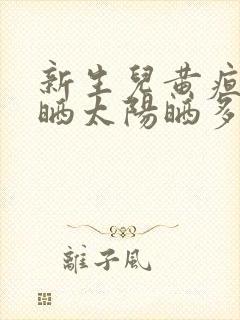 新生兒黃疸
曬太陽曬多
離子風